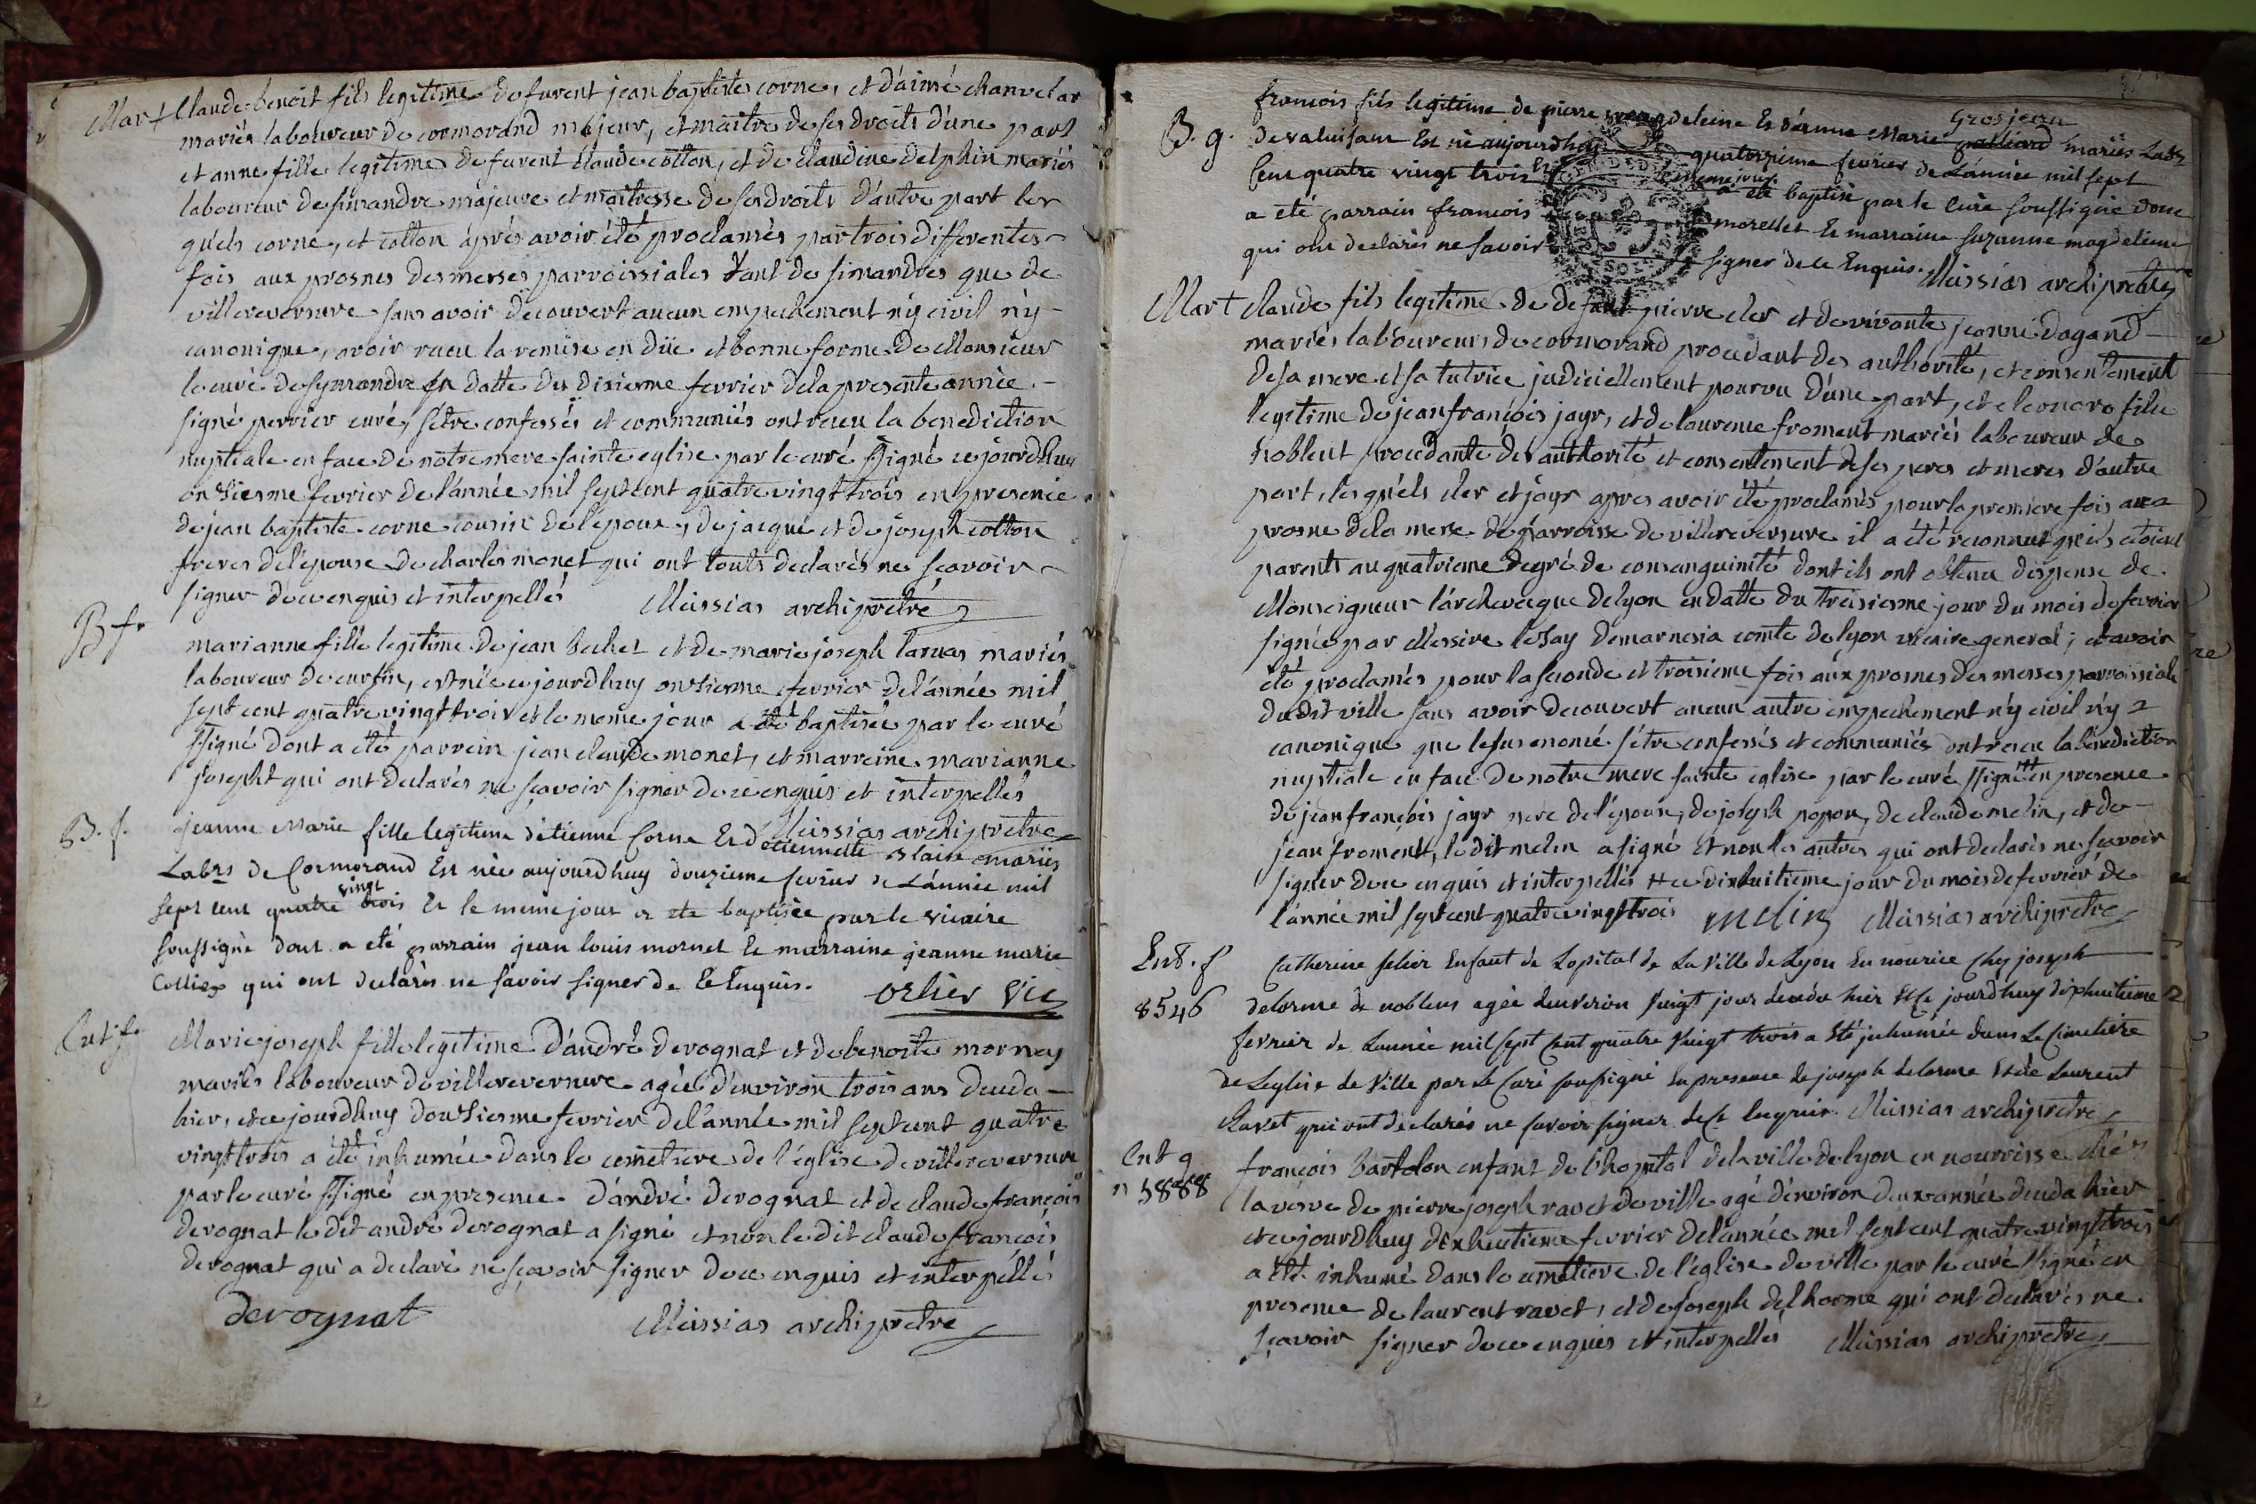 Mar+ Claude benoit fils legitime de furent jean baptiste corne, et d'aimé chanvelar
mariés laboureur de cormorand majeur, et maitre de ses droits d'une part
et anne fille legitime de furent claude cotton, et de claudine delphin mariés
laboureur de simandre majeure et maitresse de ses droits d'autre part les
quels corne, et cotton après avoir été proclamés par trois differentes
fois aux prosnes des messes parroissiales tant de simandres que de
villereversure sans avoir decouvert aucun empechement n'y civil n'y
canonique, avoir receu la remise en düe et bonne forme de Monsieur
le curé de symandre en datte du dixiesme fevrier de la presente année
signé perrier curé, s'étre confessés et communiés ont receu la benediction
nuptiale en face de notre mere sainte eglise par le curé ssigné ce jourdhuy
onsiesme fevrier de l'année mil sept cent quatre vingt trois en presence
de jean baptiste corne cousin de l'epoux, de jacque et de joseph cotton
freres de l'epouse de charles monet qui ont touts declarés ne sçavoir
signer de ce enquis et interpellés Missias archiprétre
B. f. marianne fille legitime de jean et de marie joseph mariés
laboureur de curtin, est née ce jourdhuy onsiesme fevrier de l'année mil
sept cent quatre vingt trois et le meme jour a été baptisée par le curé
ssigné dont a été parrein jean claude monet, et marreine marianne
josepht qui ont declarés ne sçavoir signer de ce enquis et interpellés
Missias archiprétre
B. f. jeanne Marie fille legitime d'etienne Corne Et d'etiennette Blain mariés
Labrs de Cormorand Est née aujourdhuy douzieme fevrier de L'année mil
sept cent quatre vingt trois Et le meme jour a eté baptisée par le vicaire
soussigné dont a eté parrain jean louis mornet Et marraine jeanne marie
Colliex qui ont declarés ne savoir signer de Ce Enquis. orlier vic
Ent f. Marie joseph fille legitime d'andré derognat et de benoite mornay
mariés laboureur de villereversure agée d'environ trois ans deceda
hier, et ce jourdhuy dousiesme fevrier de l'année mil sept cent quatre
vingt trois a été inhumée dans le cemetiere de l'église de villereversure
par le curé ssigné en presence d'andré derognat et de claude françois
derognat le dit andré derognat a signé et non le dit claude françois
derognat qui a declaré ne sçavoir signer de ce enquis et interpellés
derognat Missias archiprétre
B. g. francois fils legitime de pierre Et d'anne Marie Grosjean mariés Labrs
de valuisant Est né aujourdhuy quatorzieme fevrier de L'année mil sept
Cent quatre vingt trois Et le meme jour a eté baptisé par le Curé soussigné dont
a eté parrain francois morellet Et marraine suzanne magdeleine
qui ont declarés ne savoir signer de Ce Enquis. Missias archiprétre
Mar+ claude fils legitime de defunt pierre cler et de vivante jeanne dagand
mariés laboureurs de cormorand procedant des authorité, et consentement
de sa mere et sa tutrice judiciellement pourvu d'une part, et eleonore fille
legitime de jean françois jayr, et de lourence froment mariés laboureur de
noblent procedante de l'authorité et consentement de ses peres et meres d'autre
part, les quels cler et jayr apres avoir été proclamés pour la premiere fois au
prosne de la messe de parroisse de villereversure il a été reconnut qu'ils étoient
parents au quatrieme degré de consanguinité dont ils ont obtenu dispense de
Monseigneur l'archeveque de lyon en datte du treisiesme jour du mois de fevrier
signée par Messire lesay demarnesia comte de lyon vicaire general; et avoir
été proclamés pour la seconde et troisieme fois aux prosnes des messes parroissiale
du dit ville sans avoir decouvert aucun autre empechement n'y civil n'y
canonique que le susenoncé. s'étre confessés et communiés ont receu la benediction
nuptiale en face de notre mere sainte eglise par le curé ssigné ++ en presence
de jean françois jayr pere de l'epouse, de joseph popon, de claude melin, et de
jean froment, le dit melin a signé et non les autres qui ont declarés ne sçavoir
signer de ce enquis et interpellés ++ ce dixhuitieme jour du mois de fevrier de
l'année mil sept cent quatre vingt trois melin Missias archiprétre
Ent. f Catherine felix Enfant de Lopital de La Ville de Lyon En nourice Chez joseph
8546 delorme de noblens agée denviron Vingt jour deceda hier Et Ce jourdhuy dixhuitieme
fevrier de Lannée mil sept Cent quatre Vingt trois a Eté inhumée dans Le Cimetiere
de Leglise de Ville par Le Curé soussigné En presence de joseph delorme Et de Laurent
Ravet qui ont declarés ne savoir signer de Ce Enquis. Missias archiprétre
Ent g françois bartolon enfant de l'hopital de la ville de lyon en nourrisse chés
n 5888 la vefve de pierre joseph ravet de ville agé d'environ deux année deceda hier
et ce jourdhuy dixhuitieme fevrier de l'année mil sept cent quatre vingt trois
a été inhumé dans le cemetiere de l'église de ville par le curé ssigné en
presence de laurent ravet, et de joseph delhorme qui ont declarés ne
sçavoir signer de ce enquis et interpellés Missias archiprétre